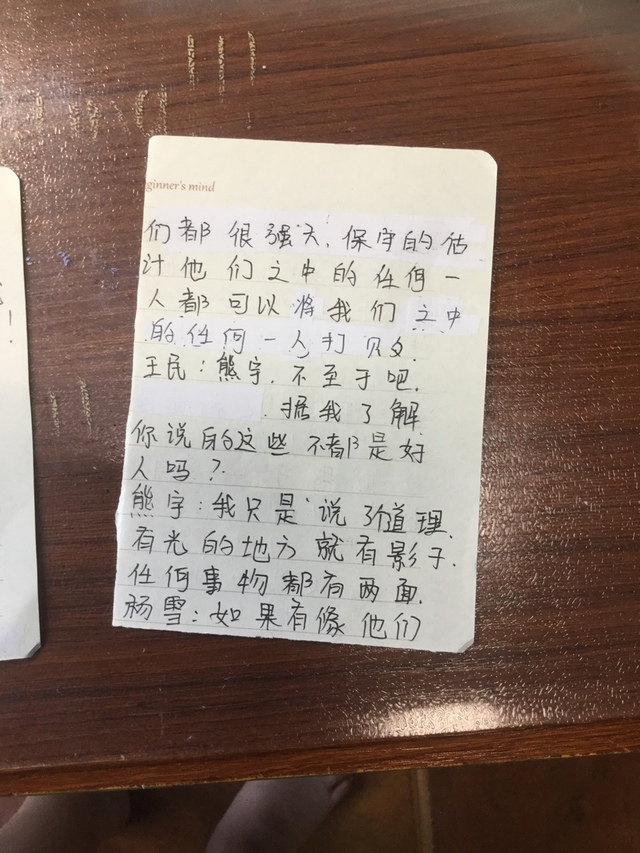 ginner's mind
们都很强大，保守的估
计他们之中的任何一
人都可以将我们之中
的任何一人打败.
王民：熊宇，不至于吧.
．据我了解
你说的这些不都是好
人吗？
熊宇：我只是说了个道理.
有光的地方就有影子.
任何事物都有两面.
杨雪：如果有像他们
！